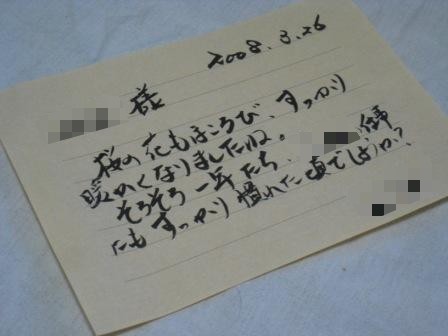 2008.3.26
様
桜の花もほころび、すっかり
暖かくなりましたね。
そろそろ一年たち、仕事
にもすっかり慣れた頃でしょうか?